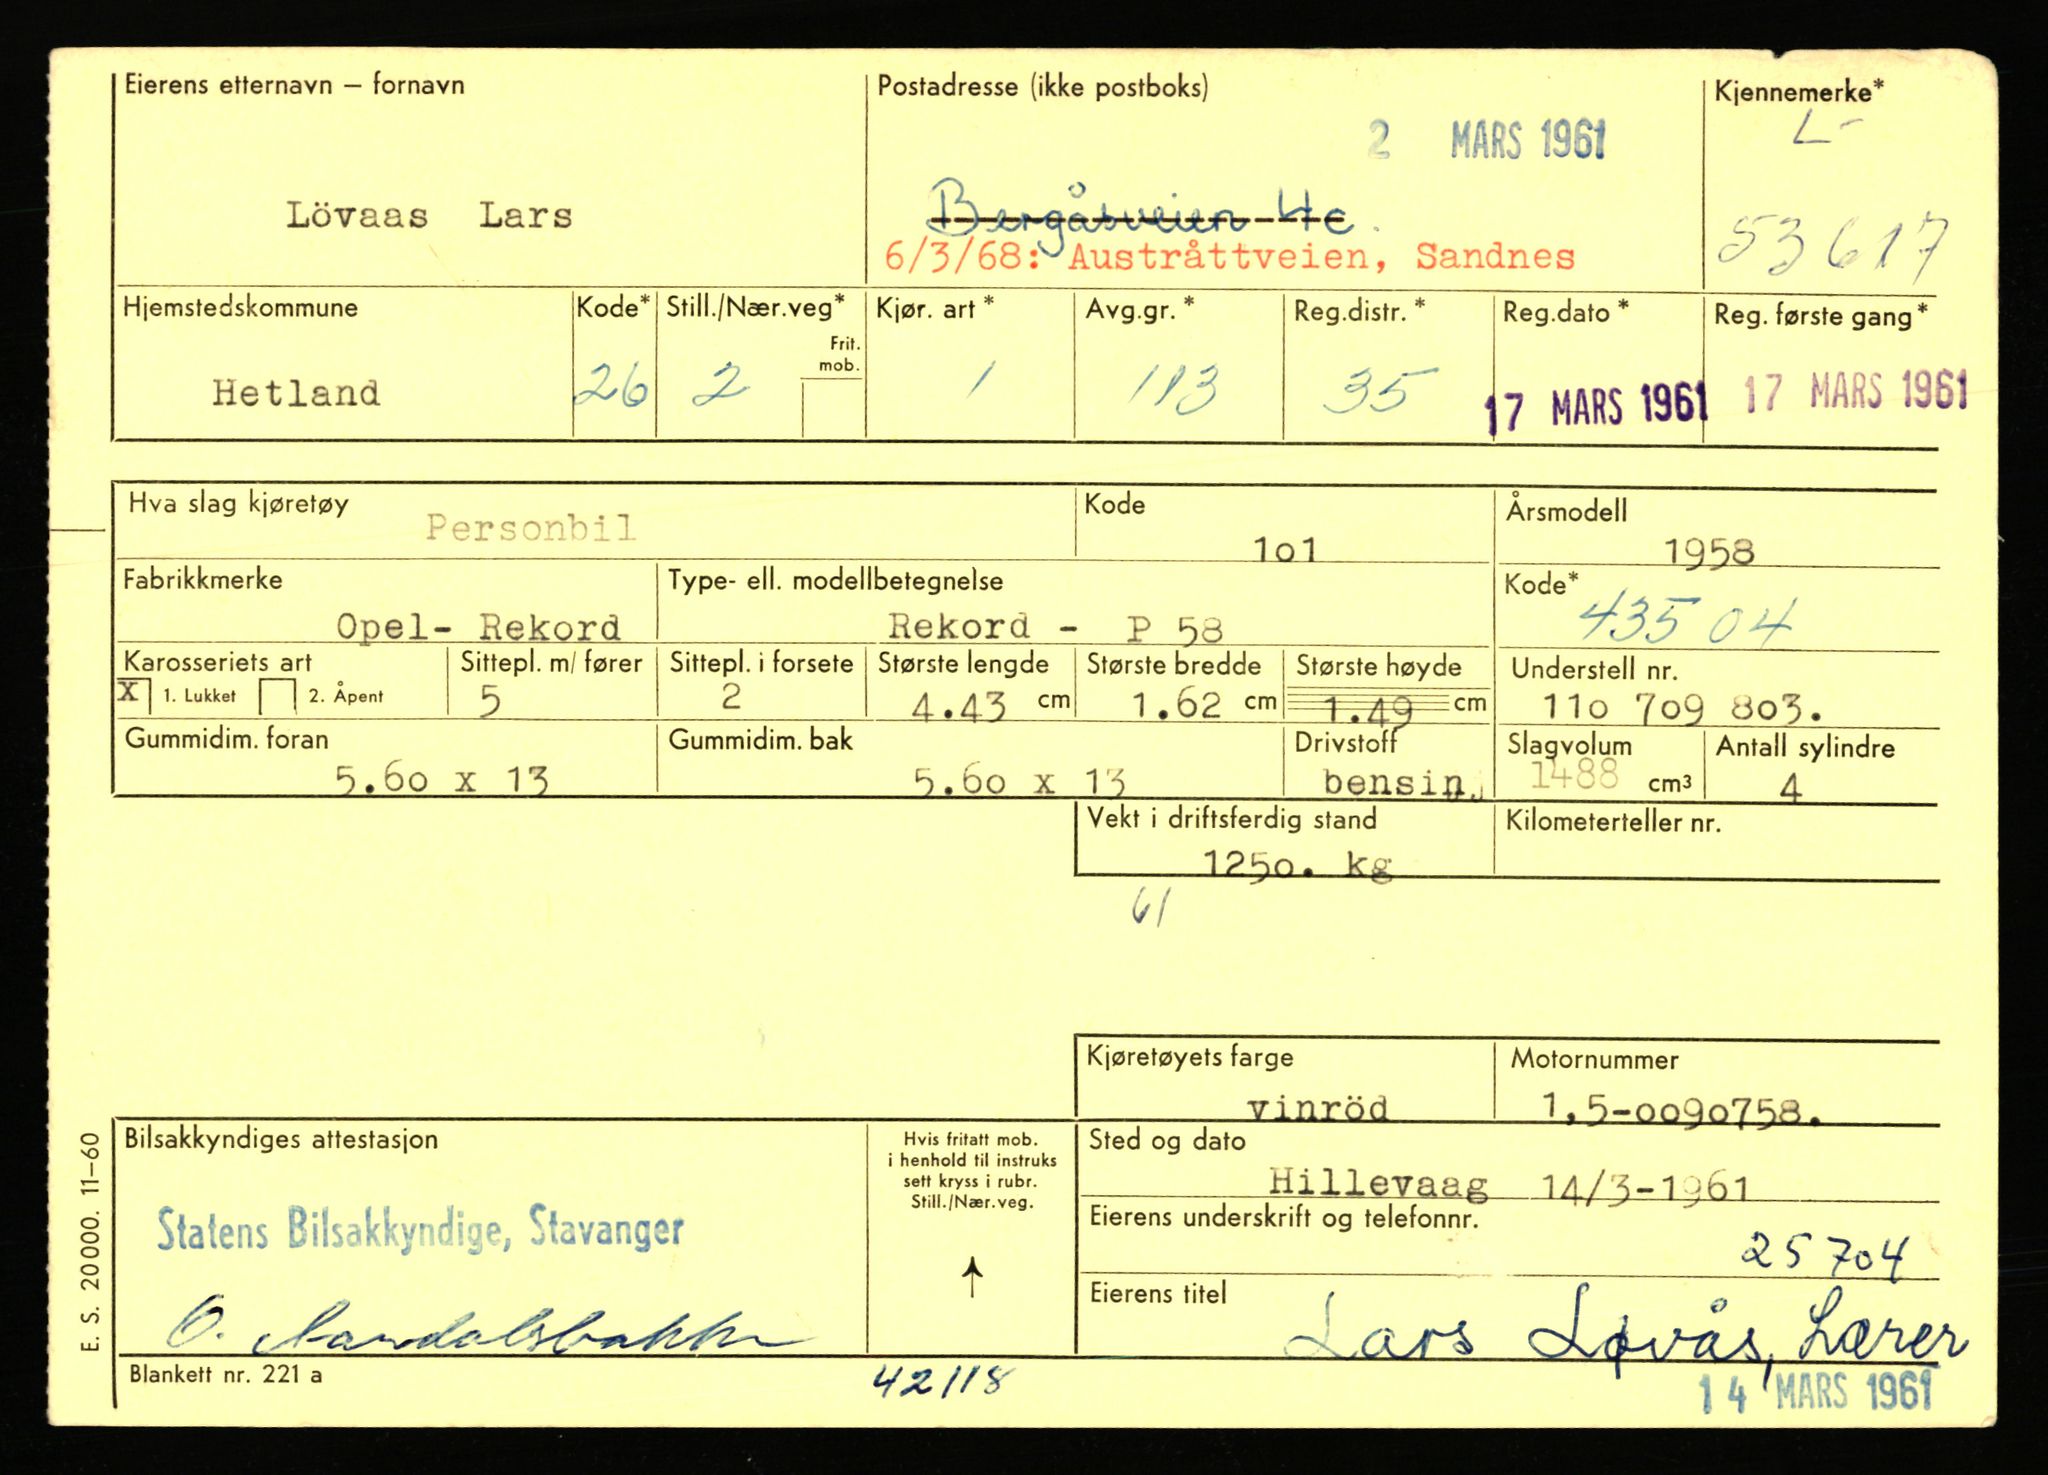 Eierens etternavn – fornavn
Postadresse (ikke postboks)
Kjennemerke*
2 MARS 1961
L-
Lövaas Lars
Bergåsveien 4c.
53617
6/3/68: Austråttveien, Sandnes
Hjemstedskommune
Kode*
Still./Nær.veg*
Frit. mob.
Kjør. art *
Avg.gr. *
Reg.distr. *
Reg.dato *
Reg. første gang*
Hetland
26
2
1
113
35
17 MARS 1961
17 MARS 1961
Hva slag kjøretøy
Personbil
Kode
1o1
Årsmodell
1958
Fabrikkmerke
Opel- Rekord
Type- ell. modellbetegnelse
Rekord - P 58
Kode*
435 04
Karosseriets art
X 1. Lukket 2. Åpent
Sittepl. m/ fører
5
Sittepl. i forsete
2
Største lengde
4.43 cm
Største bredde
1.62 cm
Største høyde
1.49 cm
Understell nr.
11o 7o9 8o3.
Gummidim. foran
5.6o x 13
Gummidim. bak
5.6o x 13
Drivstoff
bensin.
Slagvolum
1488 cm³
Antall sylindre
4
Vekt i driftsferdig stand
125o. kg
Kilometerteller nr.
61
Kjøretøyets farge
vinröd
Motornummer
1,5-oo9o758.
Bilsakkyndiges attestasjon
Statens Bilsakkyndige, Stavanger
Hvis fritatt mob.
i henhold til instruks
sett kryss i rubr.
Still./Nær.veg.
Sted og dato
Hillevaag 14/3-1961
Eierens underskrift og telefonnr.
25704
Eierens titel
Lars Løvås, Lærer
E. S. 20000. 11–60
Blankett nr. 221 a
42118
14 MARS 1961